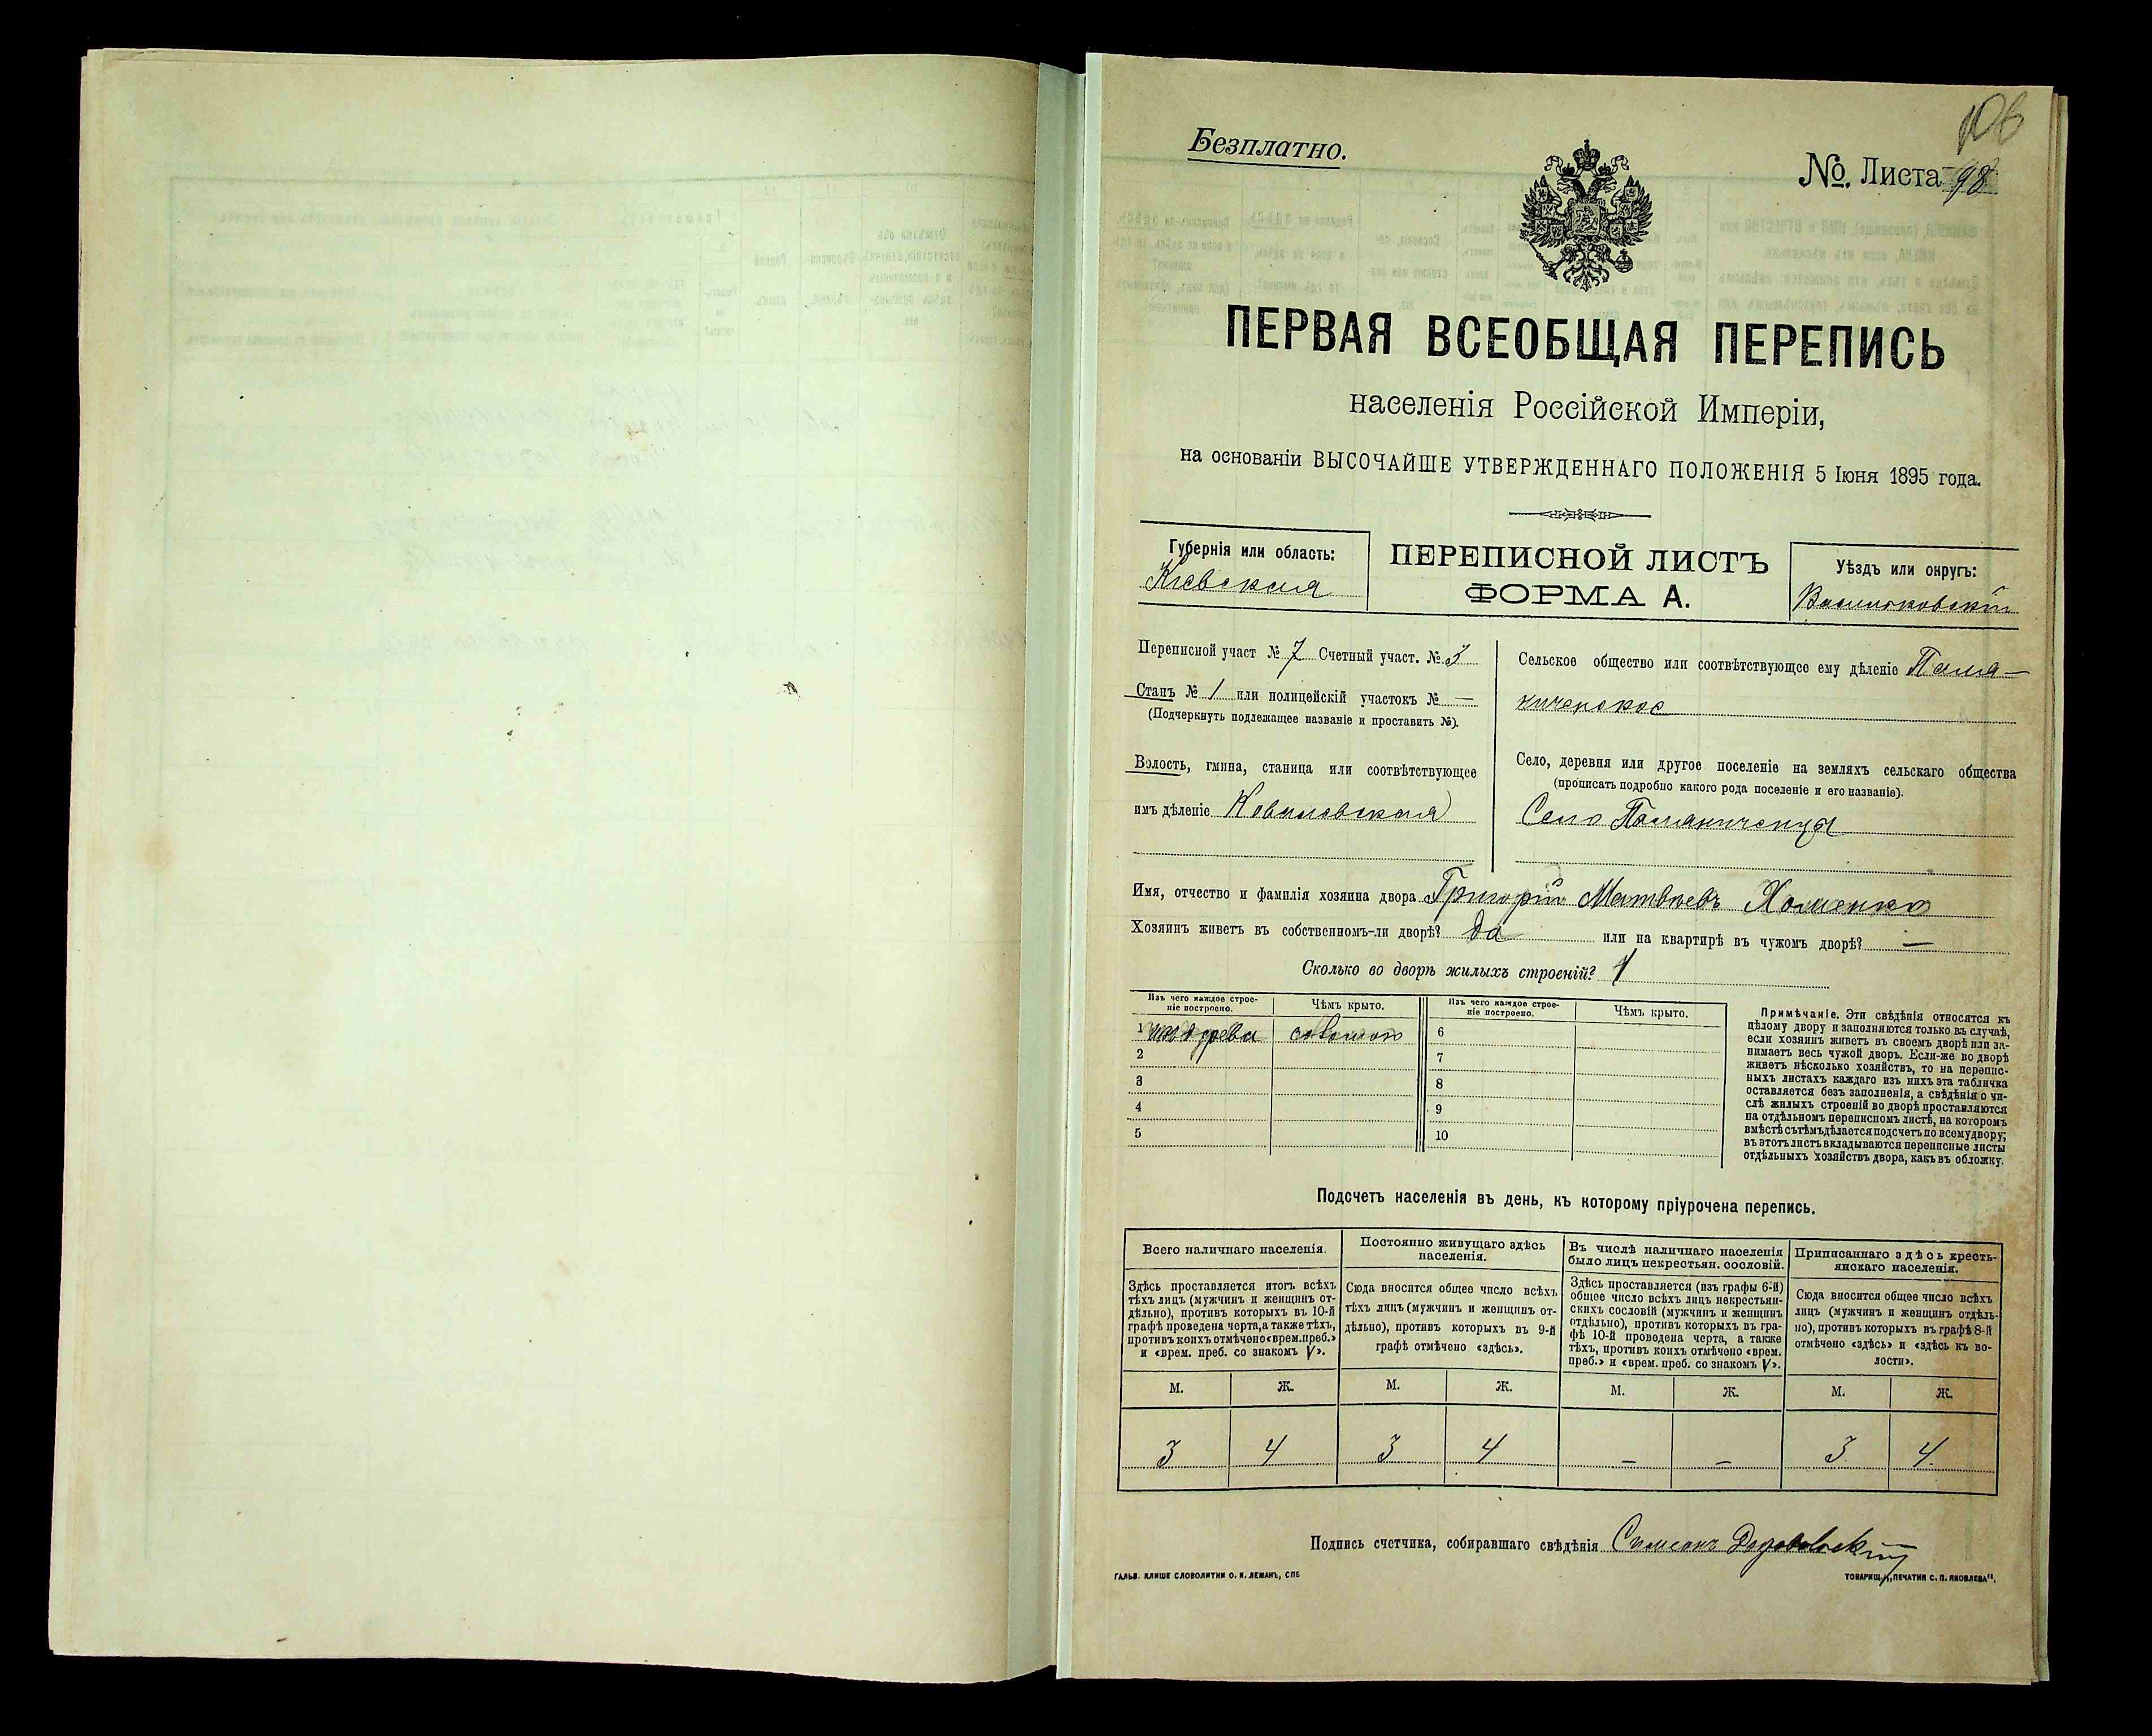 Безплатно.
№. Листа 98
ПЕРВАЯ ВСЕОБЩАЯ ПЕРЕПИСЬ
населенія Россійской Имперіи,
на основаніи ВЫСОЧАЙШЕ УТВЕРЖДЕННАГО ПОЛОЖЕНІЯ 5 Іюня 1895 года.
Губернія или область:
Кіевская
ПЕРЕПИСНОЙ ЛИСТЪ
ФОРМА А.
Уѣздъ или округъ:
Васильковскій
Переписной участ № 7 Счетный участ. № 3
Станъ № 1 или полицейскій участокъ № —
(Подчеркнуть подлежащее названіе и проставить №).
Волость, гмина, станица или соотвѣтствующее
имъ дѣленіе Ковалевская
Сельское общество или соотвѣтствующее ему дѣленіе
Село, деревня или другое поселеніе на земляхъ сельскаго общества
(прописать подробно какого рода поселеніе и его названіе).
Село
Имя, отчество и фамилія хозяина двора Григорій Матвѣевъ Хоменко
Хозяинъ живетъ въ собственномъ-ли дворѣ? Да или на квартирѣ въ чужомъ дворѣ? —
Сколько во дворѣ жилыхъ строеній? 1
Изъ чего каждое строе-
ніе построено.
Чѣмъ крыто.
Изъ чего каждое строе-
ніе построено.
Чѣмъ крыто.
1 древа
6
2
7
3
8
4
9
5
10
Примѣчаніе. Эти свѣдѣнія относятся къ
цѣлому двору и заполняются только въ случаѣ,
если хозяинъ живетъ въ своемъ дворѣ или за-
нимаетъ весь чужой дворъ. Если-же во дворѣ
живетъ нѣсколько хозяйствъ, то на перепис-
ныхъ листахъ каждаго изъ нихъ эта табличка
оставляется безъ заполненія, а свѣдѣнія о чи-
слѣ жилыхъ строеній во дворѣ проставляются
на отдѣльномъ переписномъ листѣ, на которомъ
вмѣстѣ съ тѣмъ дѣлается подсчетъ по всему двору;
въ этотъ листъ вкладываются переписные листы
отдѣльныхъ хозяйствъ двора, какъ въ обложку.
Подсчетъ населенія въ день, къ которому пріурочена перепись.
Всего наличнаго населенія.
Здѣсь проставляется итогъ всѣхъ
тѣхъ лицъ (мужчинъ и женщинъ от-
дѣльно), противъ которыхъ въ 10-й
графѣ проведена черта, а также тѣхъ,
противъ коихъ отмѣчено «врем. преб.»
и «врем. преб. со знакомъ V».
Постоянно живущаго здѣсь
населенія.
Сюда вносится общее число всѣхъ
тѣхъ лицъ (мужчинъ и женщинъ от-
дѣльно), противъ которыхъ въ 9-й
графѣ отмѣчено «здѣсь».
Въ числѣ наличнаго населенія
было лицъ некрестьян. сословій.
Здѣсь проставляется (изъ графы 6-й)
общее число всѣхъ лицъ некрестьян-
скихъ сословій (мужчинъ и женщинъ
отдѣльно), противъ которыхъ въ гра-
фѣ 10-й проведена черта, а также
тѣхъ, противъ коихъ отмѣчено «врем.
преб.» и «врем. преб. со знакомъ V».
Приписаннаго здѣсь кресть-
янскаго населенія.
Сюда вносится общее число всѣхъ
лицъ (мужчинъ и женщинъ отдѣль-
но), противъ которыхъ въ графѣ 8-й
отмѣчено «здѣсь» и «здѣсь къ во-
лости».
М. Ж. М. Ж. М. Ж. М. Ж.
3 4 3 4 – – 3 4
Подпись счетчика, собиравшаго свѣдѣнія
ГАЛЬВ. КЛИШЕ СЛОВОЛИТНИ О. И. ЛЕМАНЪ, СПБ
ТОВАРИЩ. „ПЕЧАТНЯ С. П. ЯКОВЛЕВА".